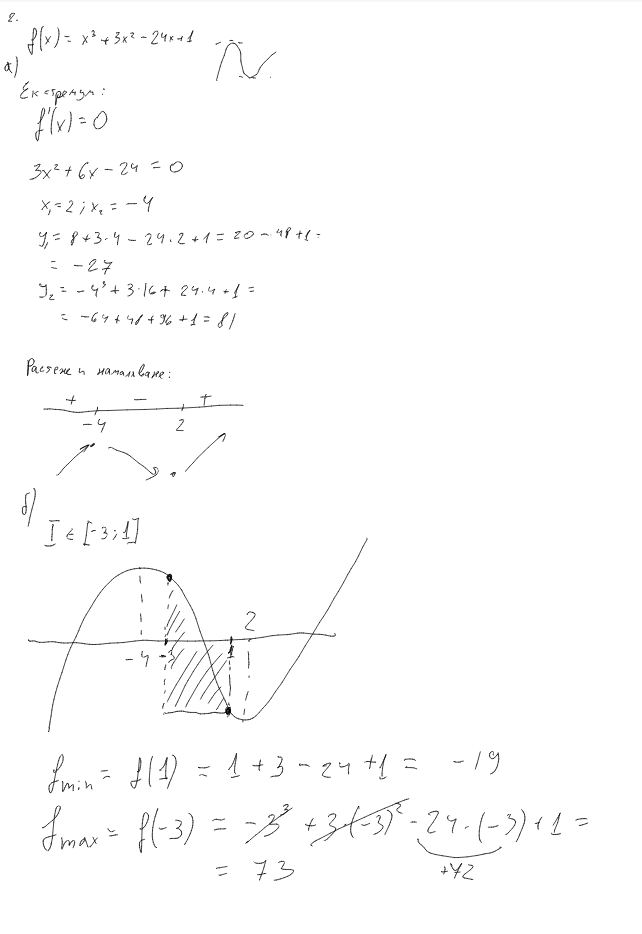 2.
f(x) = x³ + 3x² - 24x + 1
а)
Екстремум:
f'(x) = 0
3x² + 6x - 24 = 0
x₁ = 2 ; x₂ = -4
y₁ = 8 + 3·4 - 24·2 + 1 = 20 - 48 + 1 =
= -27
y₂ = -4³ + 3·16 + 24·4 + 1 =
= -64 + 48 + 96 + 1 = 81
Растене и намаляване:
+ - +
-4 2
б)
I ∈ [-3 ; 1]
2
-4 -3 1
f min = f(1) = 1 + 3 - 24 + 1 = -19
f max = f(-3) = -3³ + 3·(-3)² - 24·(-3) + 1 =
= 73 +72